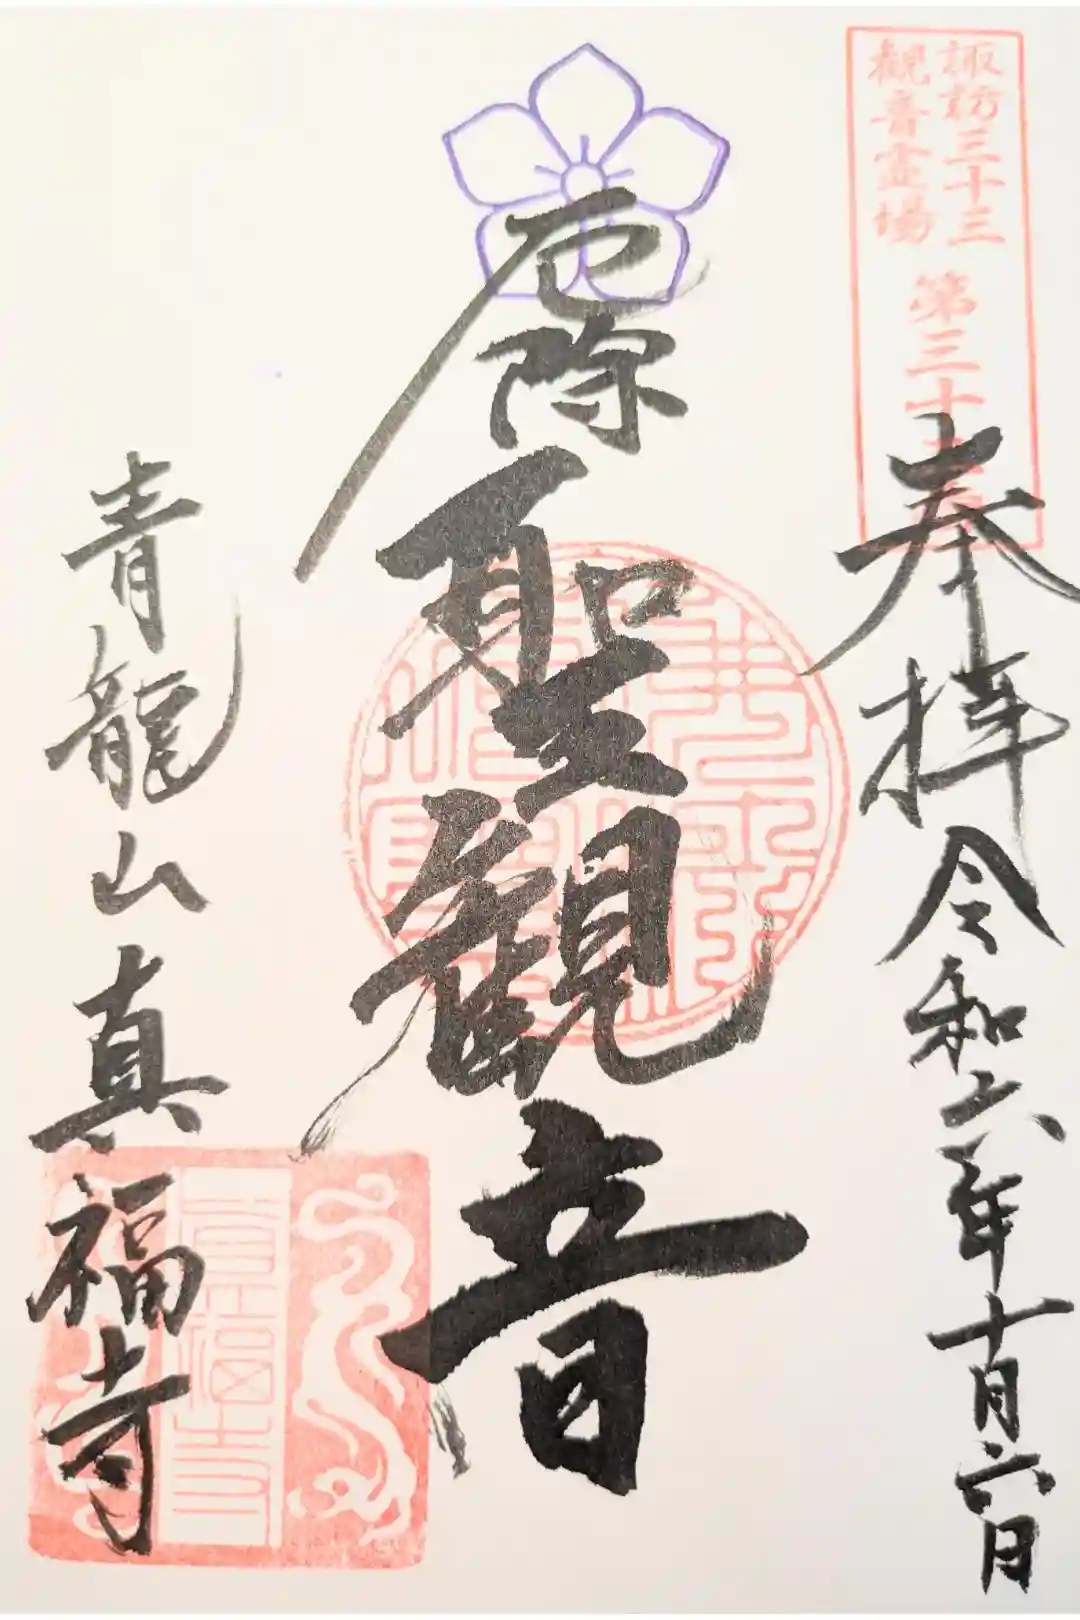 諏訪三十三
観音霊場
第三十
奉拝 令和六年十月六日
厄除 聖観音
青龍山 真福寺